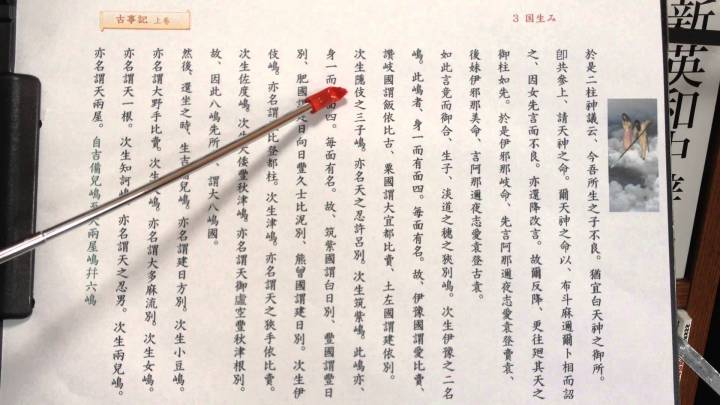 3 国生み
古事記 上巻
於是二柱神議云、今吾所生之子不良。猶宜白天神之御所。
卽共參上、請天神之命。爾天神之命以、布斗麻邇爾卜相而詔
之、因女先言而不良。亦還降改言。故爾反降、更往廻其天之
御柱如先。於是伊邪那岐命、先言阿那邇夜志愛袁登賣袁、
後妹伊邪那美命、言阿那邇夜志愛袁登古袁。
如此言竟而御合、生子、淡道之穗之狹別嶋。次生伊豫之二名
嶋。此嶋者、身一而有面四。每面有名。故、伊豫國謂愛比賣、
讚岐國謂飯依比古、粟國謂大宜都比賣、土左國謂建依別。
次生隱伎之三子嶋。亦名天之忍許呂別。次生筑紫嶋。此嶋亦、
身一而面四。每面有名。故、筑紫國謂白日別、豐國謂豐日
別、肥國日向日豐久士比泥別、熊曾國謂建日別。次生伊
伎嶋。亦名謂比登都柱。次生津嶋。亦名謂天之狹手依比賣。
次生佐度嶋。次生大倭豐秋津嶋。亦名謂天御虛空豐秋津根別。
故、因此八嶋先所、謂大八嶋國。
然後、還坐之時、生吉備兒嶋。亦名謂建日方別。次生小豆嶋。
亦名謂大野手比賣。次生嶋。亦名謂大多麻流別。次生女嶋。
亦名謂天一根。次生知訶嶋。亦名謂天之忍男。次生兩兒嶋。
亦名謂天兩屋。自吉備兒嶋至天兩屋嶋幷六嶋
新英和中